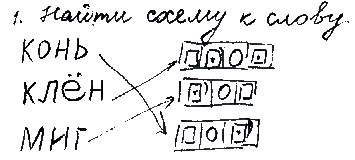 1. Найти схему к слову.
КОНЬ
КЛЁН
МИГ